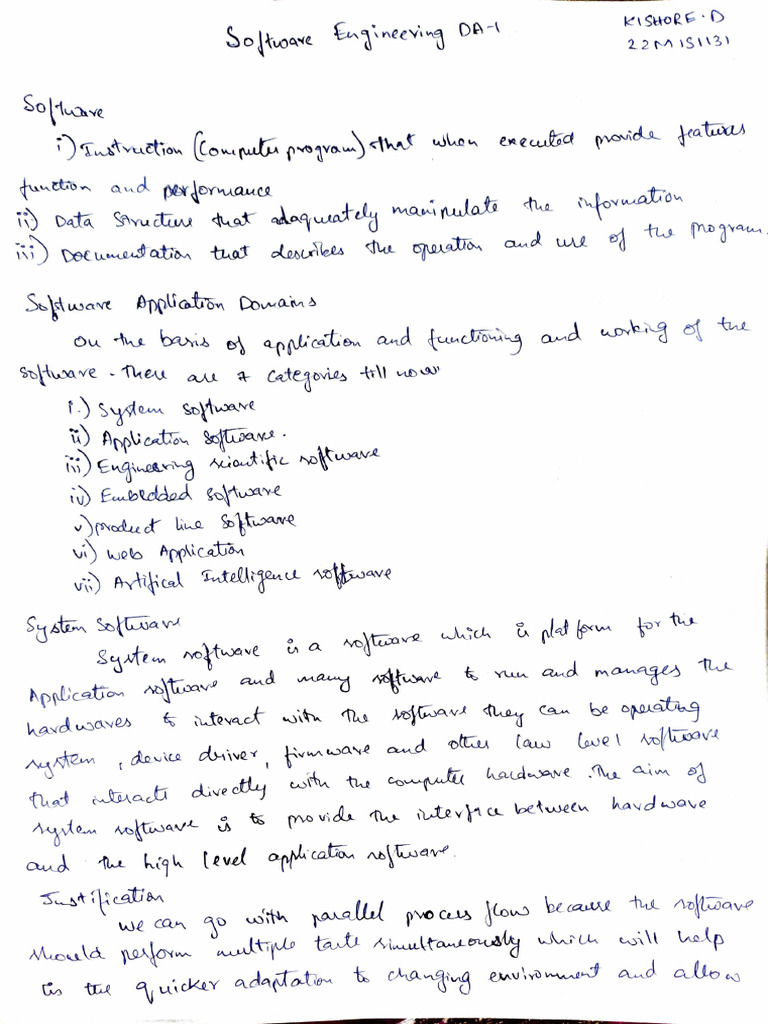 Software Engineering DA-1
KISHORE.D
22MIS1131
Software
i) Instruction (Computer program) that when executed provide features
function and performance
ii) Data Structure that adaquately manipulate the information
iii) Documentation that describes the operation and use of the program.
Software Application Domains
On the basis of application and functioning and working of the
software. There are 7 categories till now
i.) System software
ii) Application software.
iii) Engineering scientific software
iv) Embedded software
v) product line software
vi) web Application
vii) Artifical Intelligence software
System Software
System software is a software which is platform for the
Application software and many software to run and manages the
hardwares to interact with the software they can be operating
system, device driver, firmware and other law level software
that interacts directly with the computer hardware. The aim of
system software is to provide the interfce between hardware
and the high level application software.
Justification
we can go with parallel process flow because the software
should perform multiple taste simultaneously which will help
is the quicker adaptation to changing environment and allow